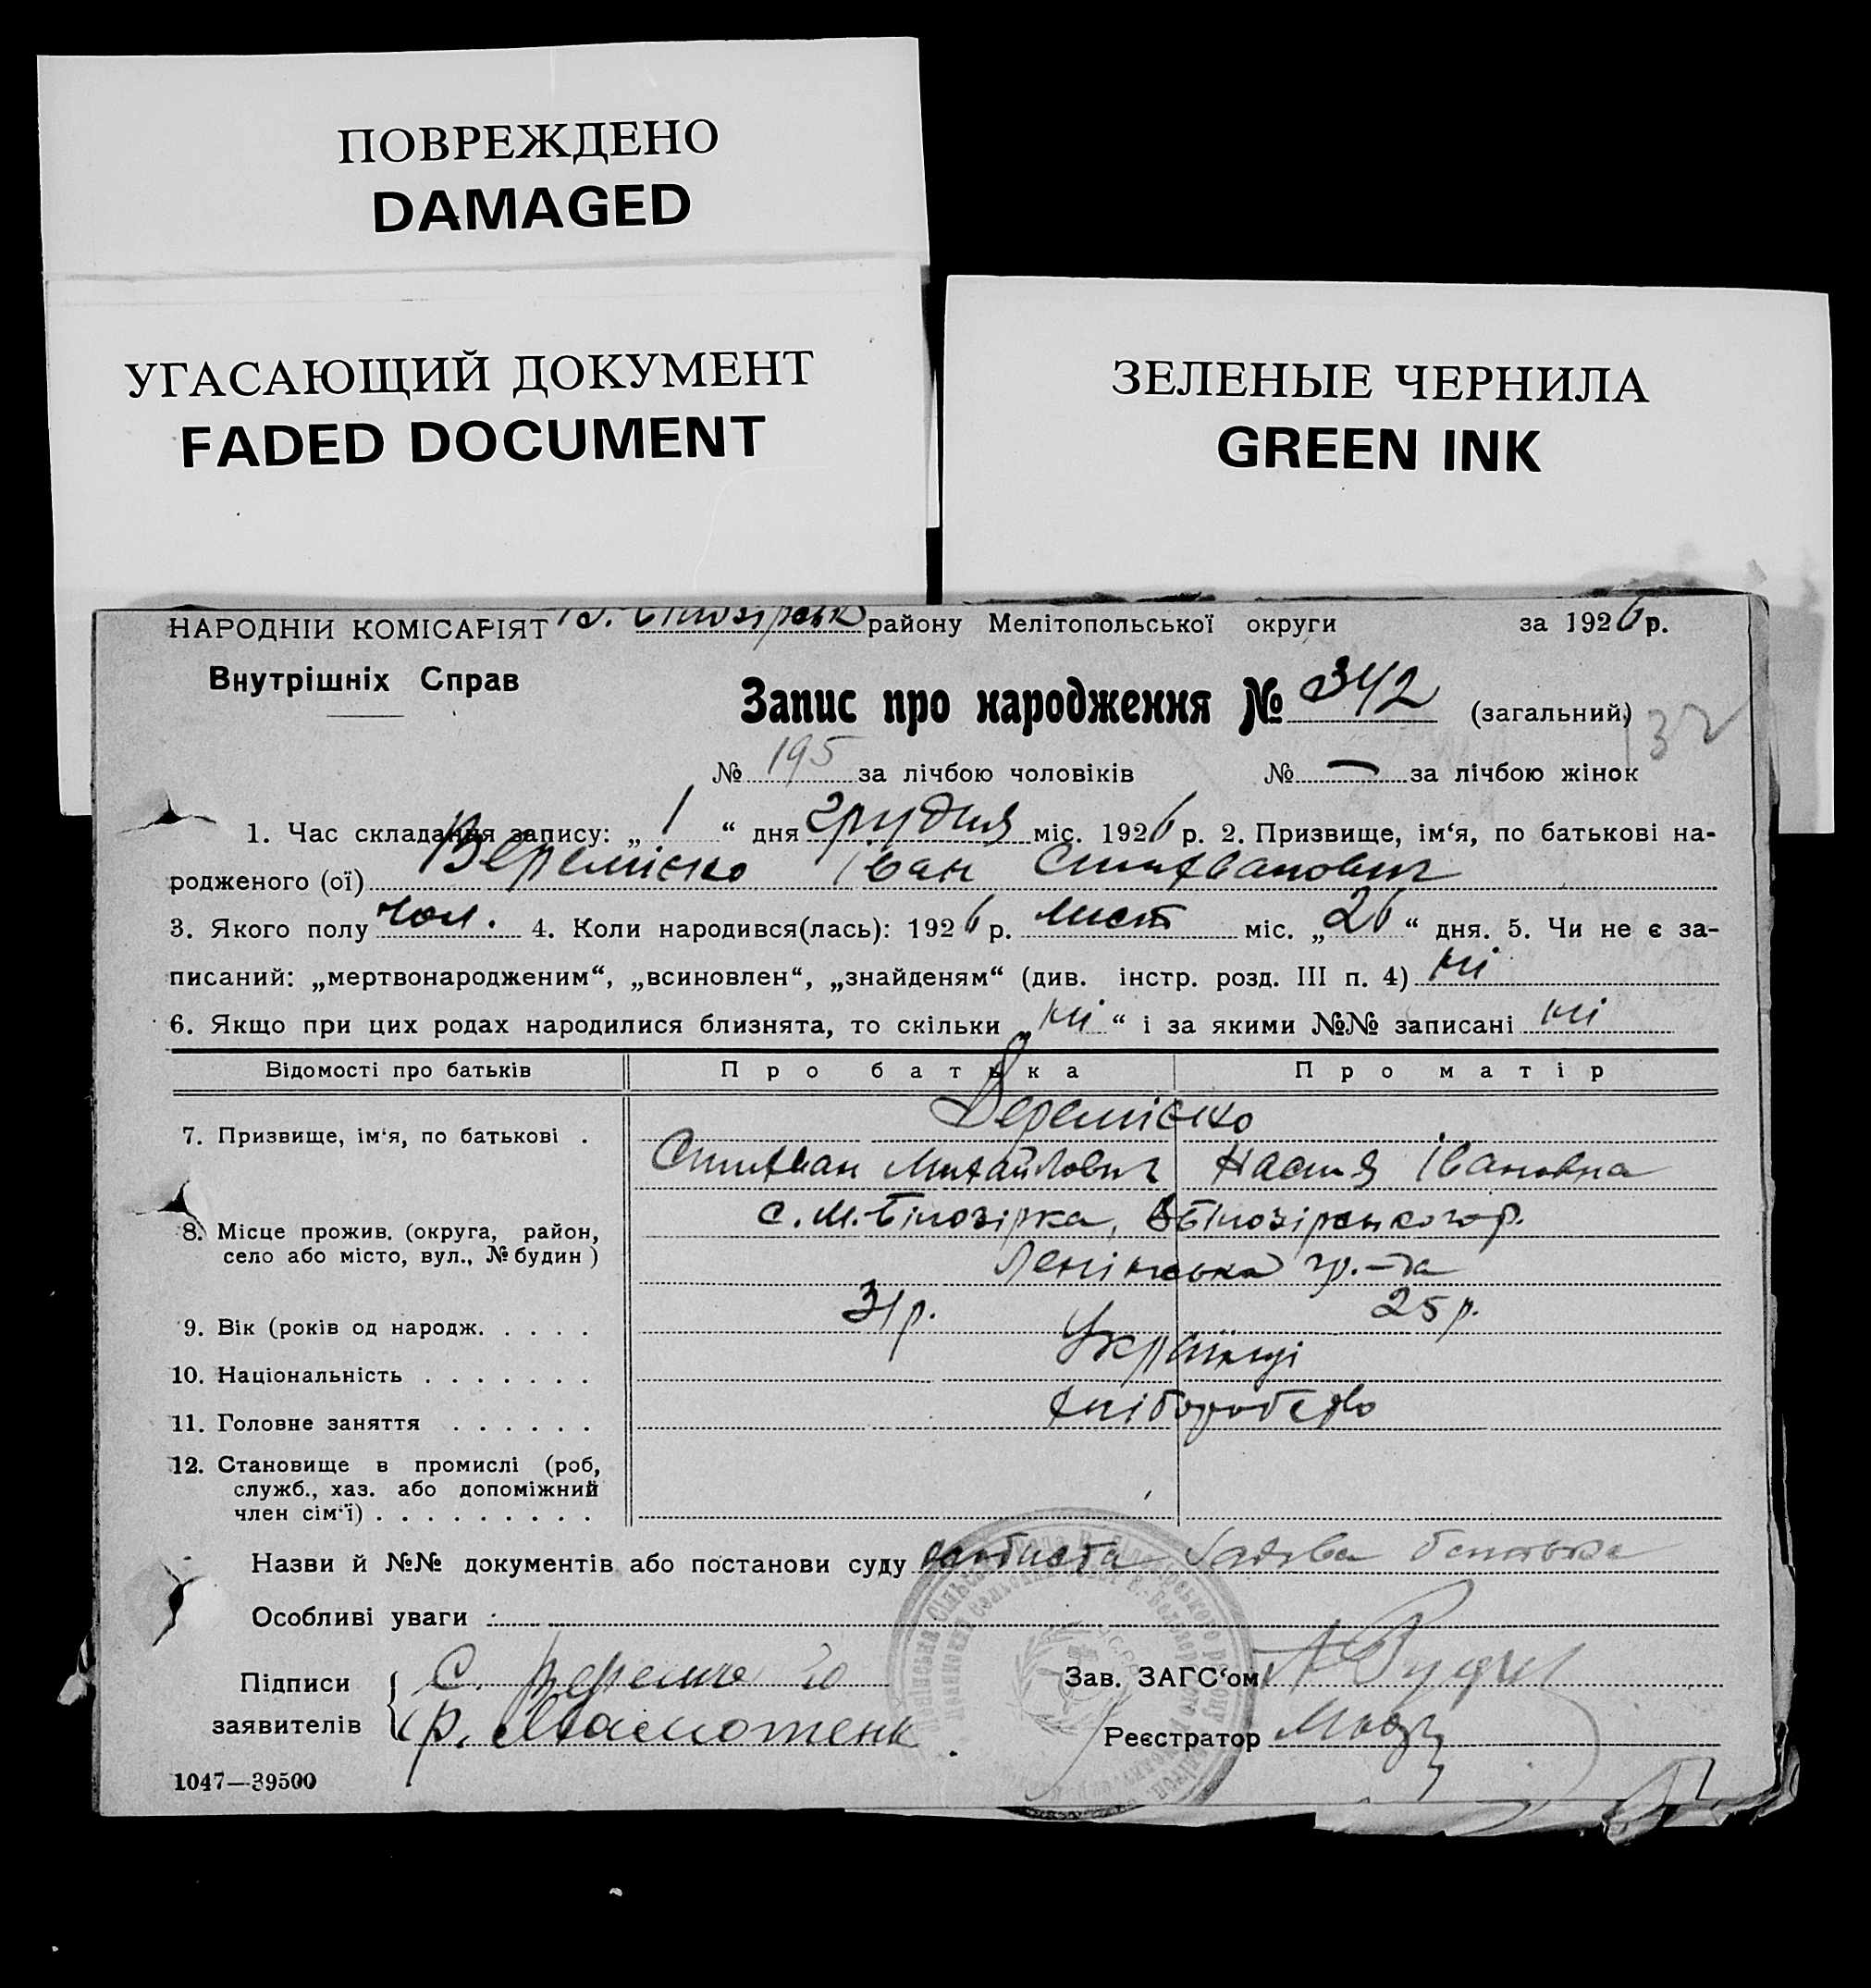 ПОВРЕЖДЕНО
DAMAGED
УГАСАЮЩИЙ ДОКУМЕНТ
FADED DOCUMENT
ЗЕЛЕНЫЕ ЧЕРНИЛА
GREEN INK
НАРОДНІИ КОМІСАРІЯТ району Мелітопольської округи за 1926 р.
Внутрішніх Справ
Запис про народження № 342 (загальний)
32
№ 195 за лічбою чоловіків № — за лічбою жінок
1. Час складання запису: „ 1 “ дня грудня міс. 1926 р. 2. Призвище, ім‘я, по батькові на-
родженого (ої) Веремієко Іван
3. Якого полу чол. 4. Коли народився(лась): 1926 р. лист міс. „26“ дня. 5. Чи не є за-
писаний: „мертвонародженим“, „всиновлен“, „знайденям“ (див. інстр. розд. III п. 4) ні
6. Якщо при цих родах народилися близнята, то скільки „ні“ і за якими №№ записані ні
Відомості про батьків Про батька Про матір
7. Призвище, ім‘я, по батькові . Веремієко
Михайлович Настя Івановна
8. Місце прожив. (округа, район, с. М. Білозірка, В Білозірського р.
село або місто, вул., № будин ) Ленінська гр.-да
9. Вік (років од народж. . . . . 31 р. 25 р.
10. Національність . . . . . . . Українці
11. Головне заняття . . . . . . хліборобство
12. Становище в промислі (роб,
служб., хаз. або допоміжний
член сім‘ї) . . . . . . . . .
Назви й №№ документів або постанови суду батька
Особливі уваги
Підписи С. Зав. ЗАГС‘ом
заявителів р. Реєстратор
1047—39500